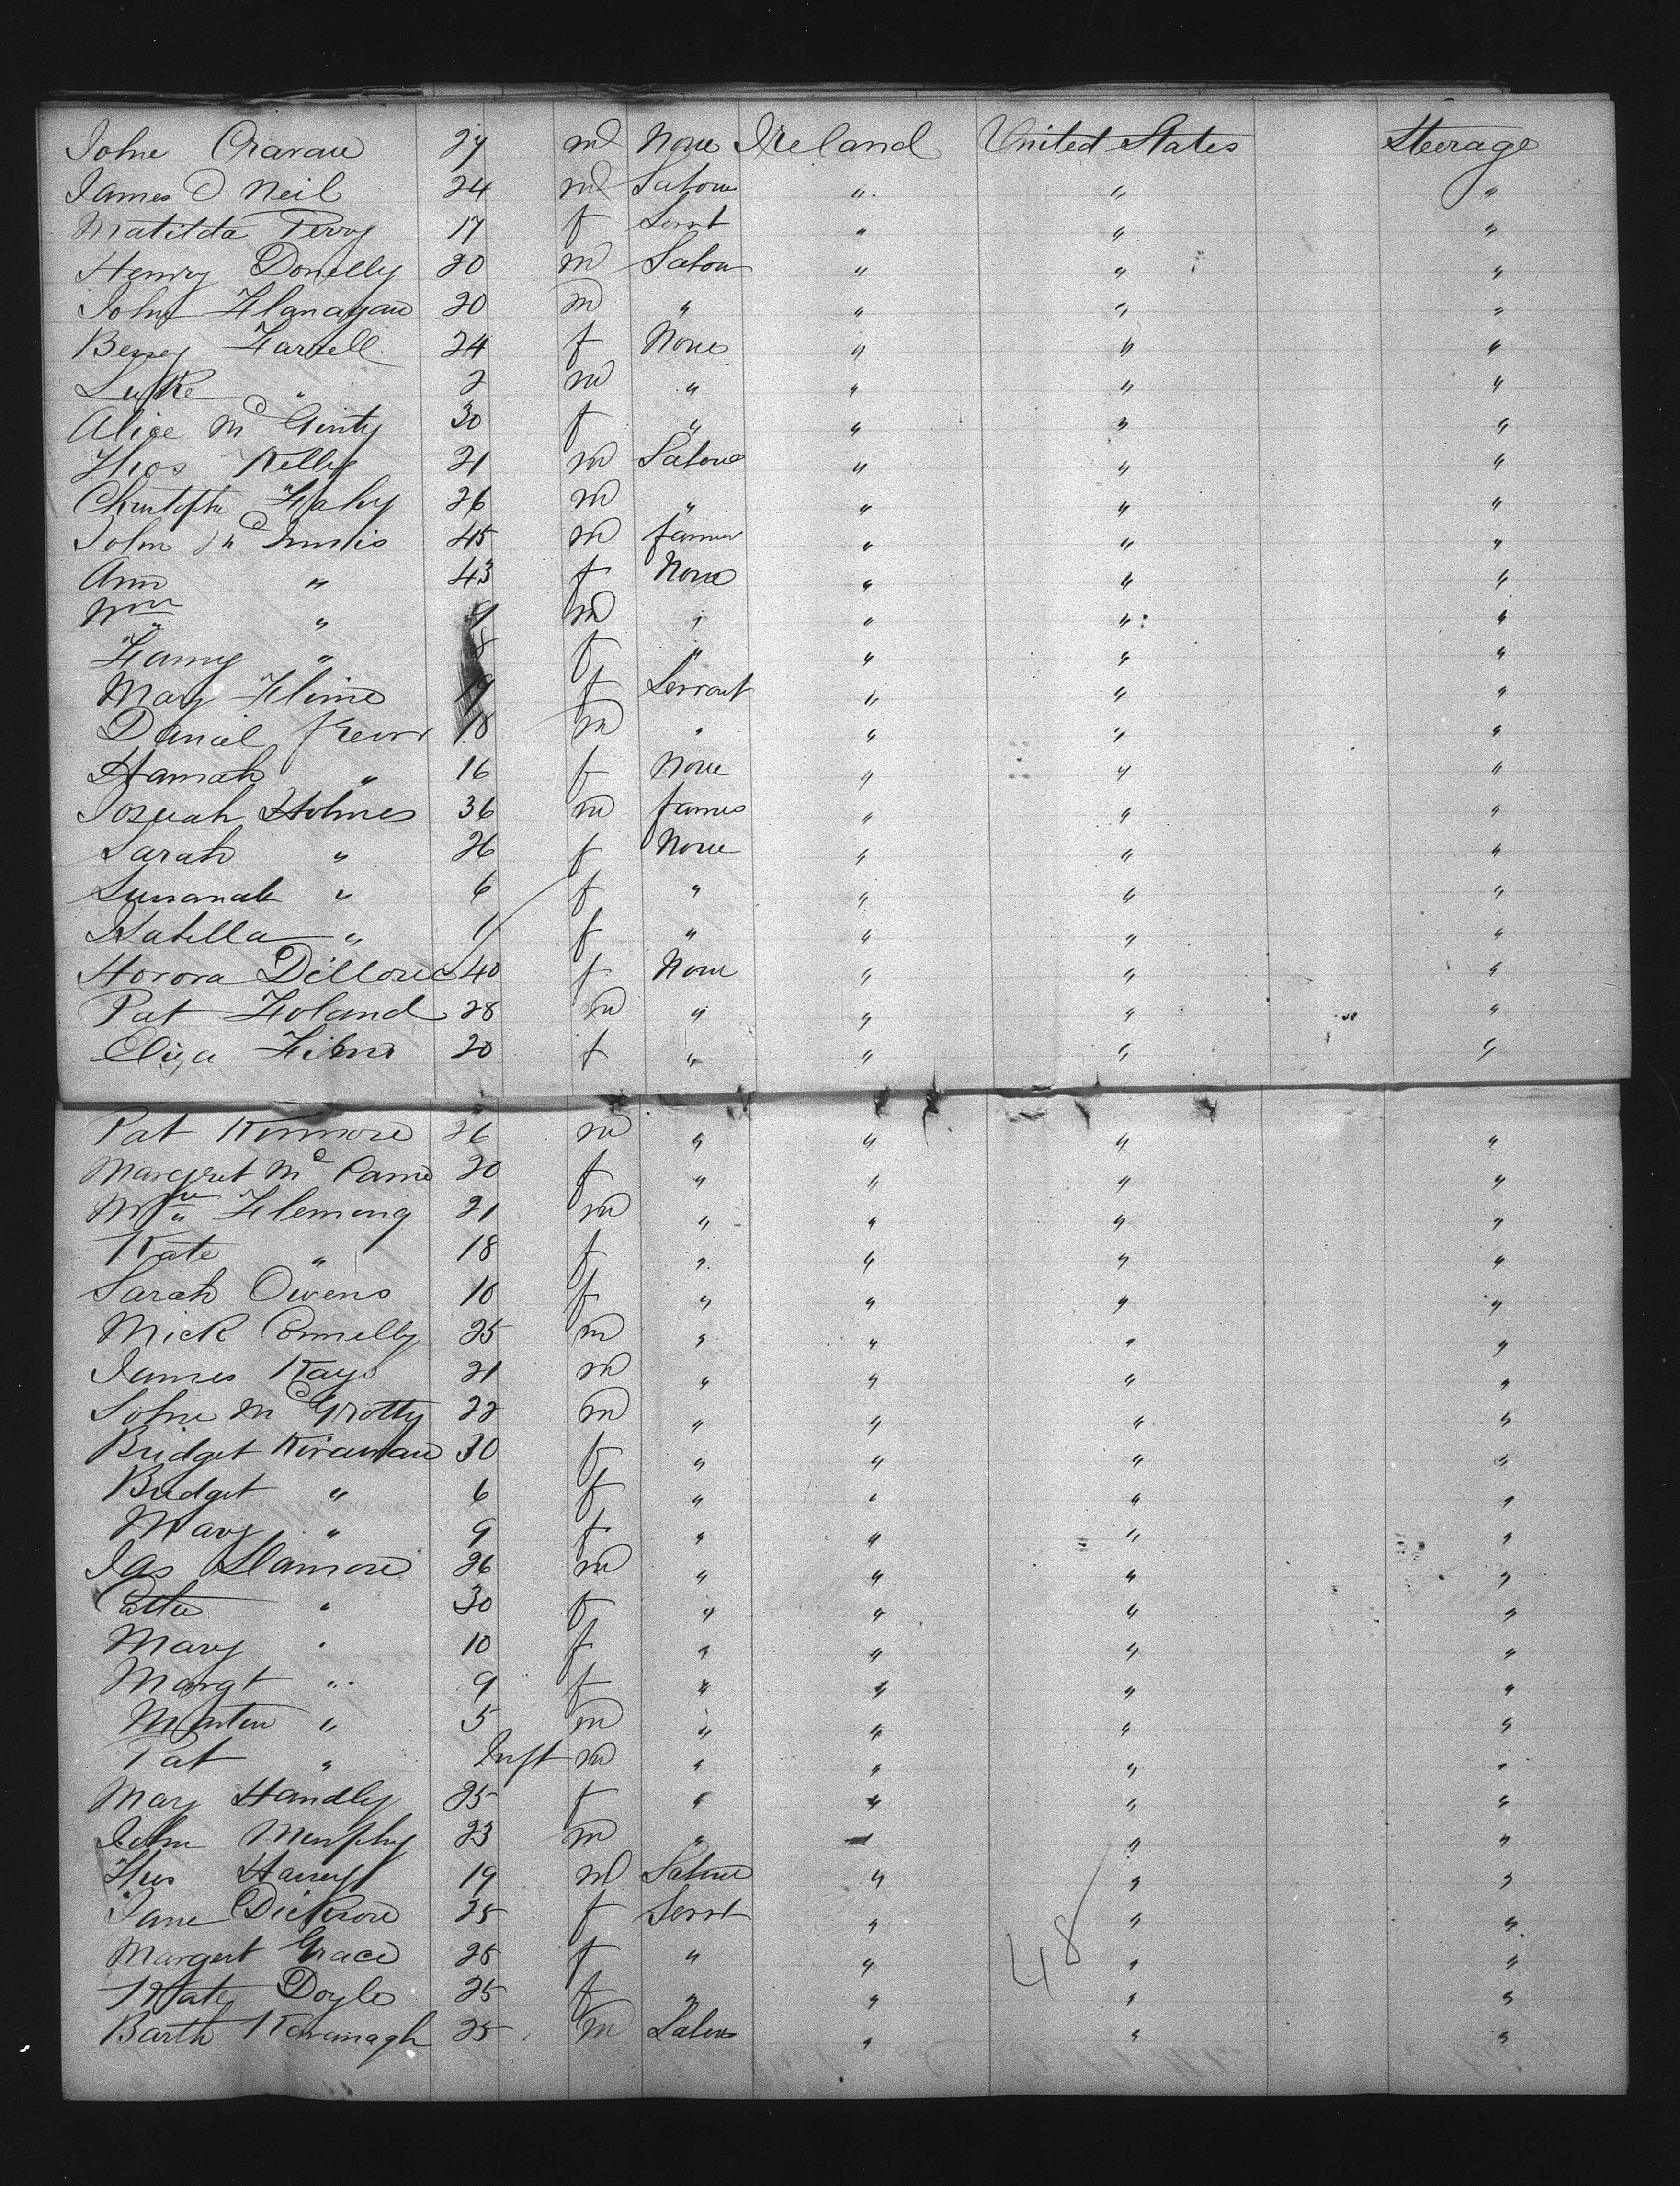 John Cravan 27 m None Ireland United States Steerage
James O Neil 24 m Labour " " "
Matilda Perry 17 f Servt " " "
Henry Donelly 20 m Labour " " "
John Flanagan 20 m " " " "
Bessey Farrell 24 f None " " "
Luke " 2 m " " " "
Alice Mc Ginty 30 f " " " "
Thos Kelly 21 m Laboue " " "
Christophr Fahy 26 m " " " "
John Mc Innis 45 m farmer " " "
Ann " 43 f None " " "
Wm " 9 m " " " "
Fanny " 8 f " " " "
Mary Flinn 19 f Servant " " "
Daniel 18 m " " " "
Hannah " 16 f None " " "
Josuah Holmes 36 m farmer " " "
Sarah " 26 f None " " "
Susanah " 6 f " " " "
Isabella " 1 f " " " "
Honora Dillon 40 f None " " "
Pat Foland 28 m " " " "
Eliza 20 f " " " "
Pat Kinmore 26 m " " " "
Margret Mc Cann 20 f " " " "
Wm Flemong 21 m " " " "
Kate " 18 f " " " "
Sarah Owens 10 f " " " "
Mick Connelly 25 m " " " "
James Kays 21 m " " " "
John Mc Grotty 22 m " " " "
Bridget Kirawan 30 f " " " "
Bridget " 6 f " " " "
Mary " 9 f " " " "
Jas Slamon 26 m " " " "
" 30 f " " " "
Mary " 10 f " " " "
Margt " 9 f " " " "
Martin " 5 m " " " "
Pat " Inft m " " " "
Mary Handly 25 f " " " "
John Murphy 23 m " " " "
Thos 19 m Labour " " "
Jane Dickson 25 f Servt " " "
Margert Grace 25 f " " " "
Kate Doyle 25 f " " " "
Barth Kavanagh 25 m Labour " " "
48